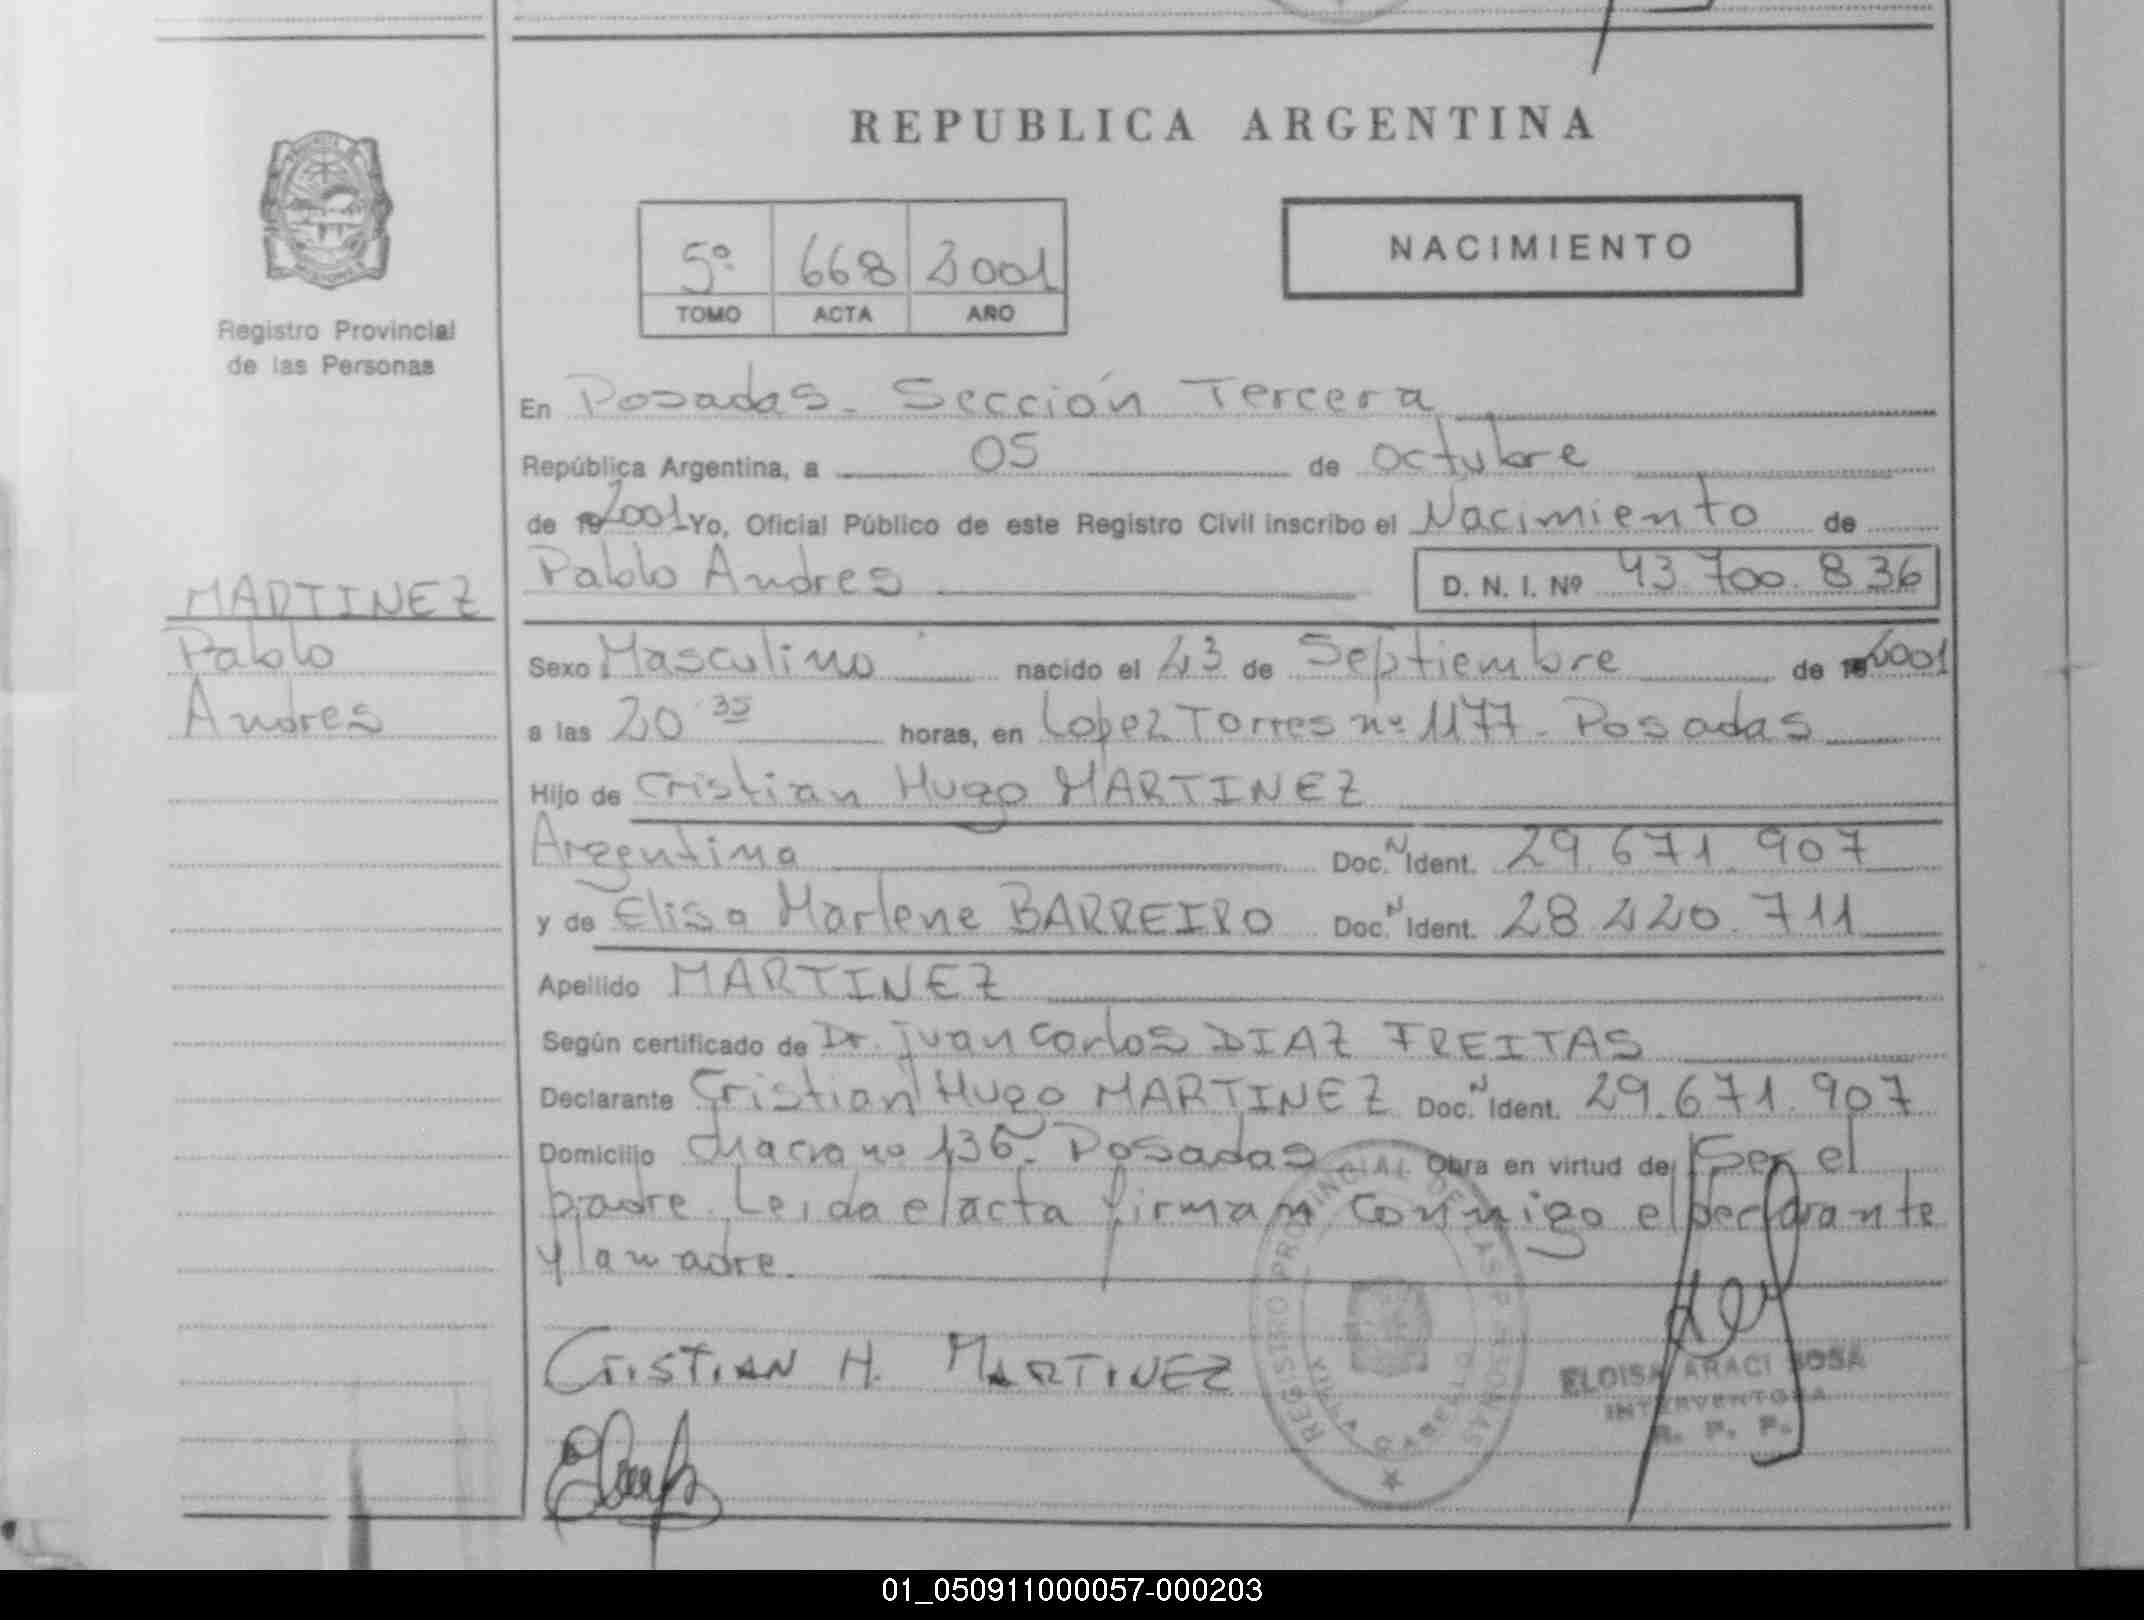 REPUBLICA ARGENTINA
NACIMIENTO
5º 668 2001
TOMO ACTA AÑO
Registro Provincial
de las Personas
En Posadas - Sección Tercera
República Argentina, a 05 de octubre
de 19 2001 Yo, Oficial Público de este Registro Civil inscribo el Nacimiento de
Pablo Andres D. N. I. Nº 43.700.836
MARTINEZ
Pablo
Andres
Sexo Masculino nacido el 23 de Septiembre de 19 2001
a las 20 35 horas, en Lopez Torres nº 1177 - Posadas
Hijo de Cristian Hugo MARTINEZ
Argentina Doc. N Ident. 29.671.907
y de Elisa Marlene BARREIRO Doc. N Ident. 28.220.711
Apellido MARTINEZ
Según certificado de Dr. Juan Carlos DIAZ FREITAS
Declarante Cristian Hugo MARTINEZ Doc. N Ident. 29.671.907
Domicilio chacra nº 136 - Posadas Obra en virtud de Ser el
padre. Leida el acta firman conmigo el Declarante
y la madre.
CRISTIAN H. MARTINEZ
REGISTRO PROVINCIAL DE LAS PERSONAS
ELOISA ARACI SOSA
INTERVENTORA
R. P. P.
01_050911000057-000203